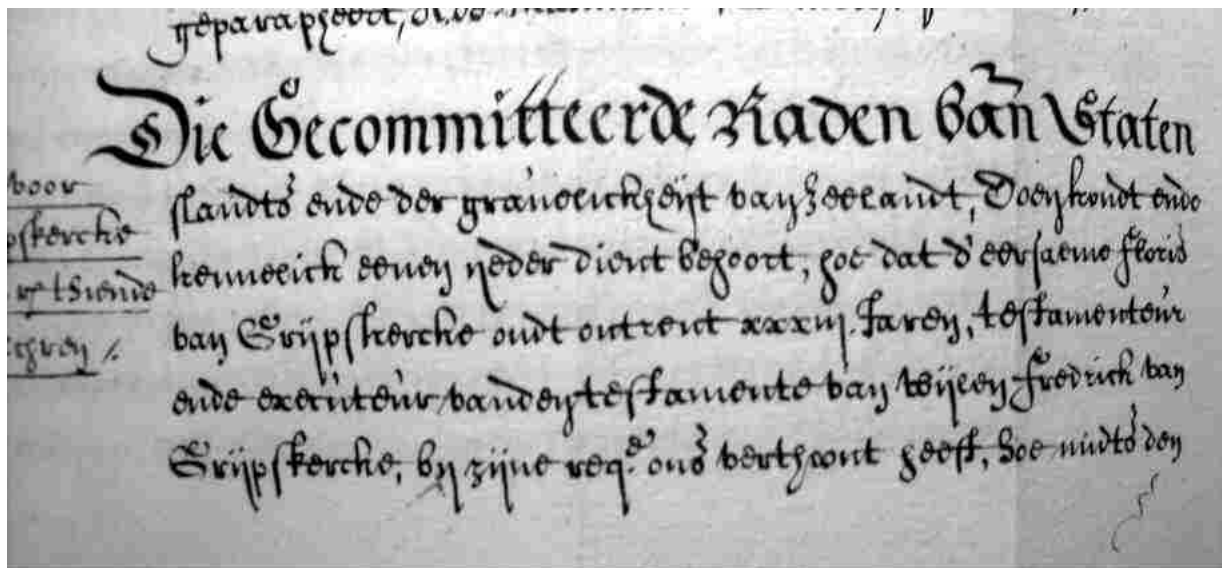 geparapheert,
Die Gecommitteerde Raden van Staten
voor
slandts ende der graeuelickheijt van Zeelandt, Doen kondt ende
skercke
kennelick eenen yeder dient behoort, hoe dat d'eersaeme Floris
van Grijpskercke oudt ontrent xxxiij. Jaren, testamenteur
ende executeur vanden testamente van wijlen Fredrick van
Grijpskercke, by zijne reqte. ons verthoont heeft, hoe midts den